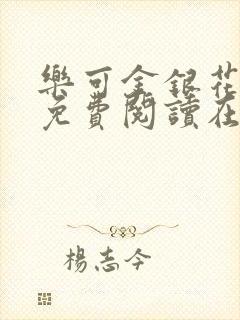 樂可金銀花
免費閱讀在
楊志今